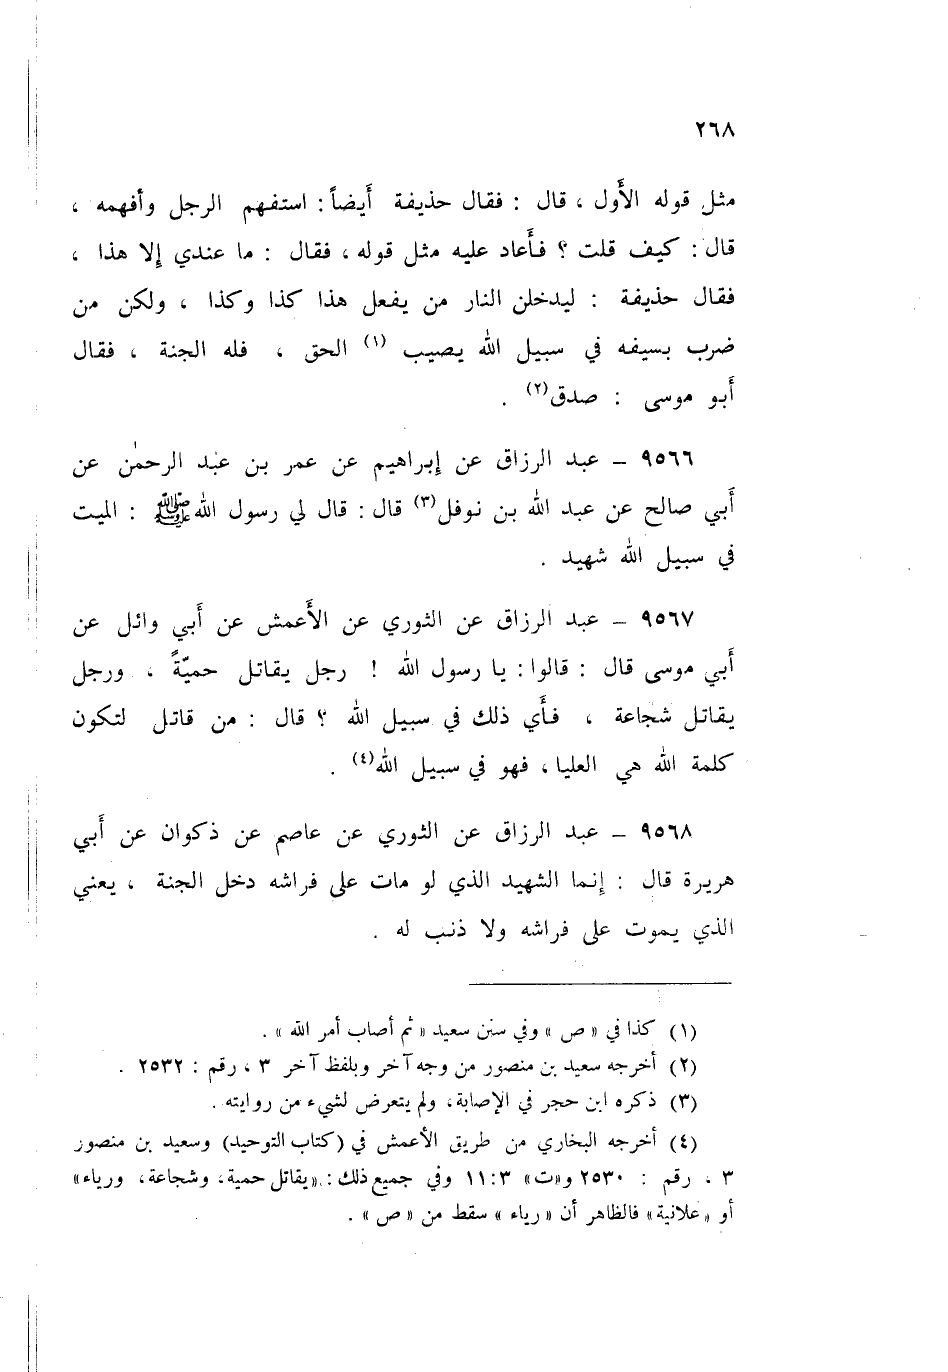 ٢٦٨
مثل قوله الأَول ، قال : فقال حذيفة أَيضاً : استفهم الرجل وأفهمه ،
قال : كيف قلت ؟ فأَعاد عليه مثل قوله ، فقال : ما عندي إِلا هذا ،
فقال حذيفة : ليدخلن النار من يفعل هذا كذا وكذا ، ولكن من
ضرب بسيفه في سبيل الله يصيب (١) الحق ، فله الجنة ، فقال
أَبو موسى : صدق(٢) .
٩٥٦٦ – عبد الرزاق عن إِبراهيم عن عمر بن عبد الرحمٰن عن
أَبي صالح عن عبد الله بن نوفل(٣) قال : قال لي رسول الله ﷺ : الميت
في سبيل الله شهيد .
٩٥٦٧ – عبد الرزاق عن الثوري عن الأَعمش عن أَبي وائل عن
أَبي موسى قال : قالوا : يا رسول الله ! رجل يقاتل حميّةً ، ورجل
يقاتل شجاعة ، فأَي ذلك في سبيل الله ؟ قال : من قاتل لتكون
كلمة الله هي العليا ، فهو في سبيل الله(٤) .
٩٥٦٨ – عبد الرزاق عن الثوري عن عاصم عن ذكوان عن أَبي
هريرة قال : إِنما الشهيد الذي لو مات على فراشه دخل الجنة ، يعني
الذي يموت على فراشه ولا ذنب له .
(١) كذا في « ص » وفي سنن سعيد « ثم أصاب أمر الله » .
(٢) أخرجه سعيد بن منصور من وجه آخر وبلفظ آخر ٣ ، رقم : ٢٥٣٢ .
(٣) ذكره ابن حجر في الإصابة، ولم يتعرض لشيء من روايته .
(٤) أخرجه البخاري من طريق الأعمش في (كتاب التوحيد) وسعيد بن منصور
٣ ، رقم : ٢٥٣٠ و«ت» ٣ : ١١ وفي جميع ذلك : «يقاتل حمية، وشجاعة، ورياء»
أو «علانية» فالظاهر أن « رياء » سقط من « ص » .